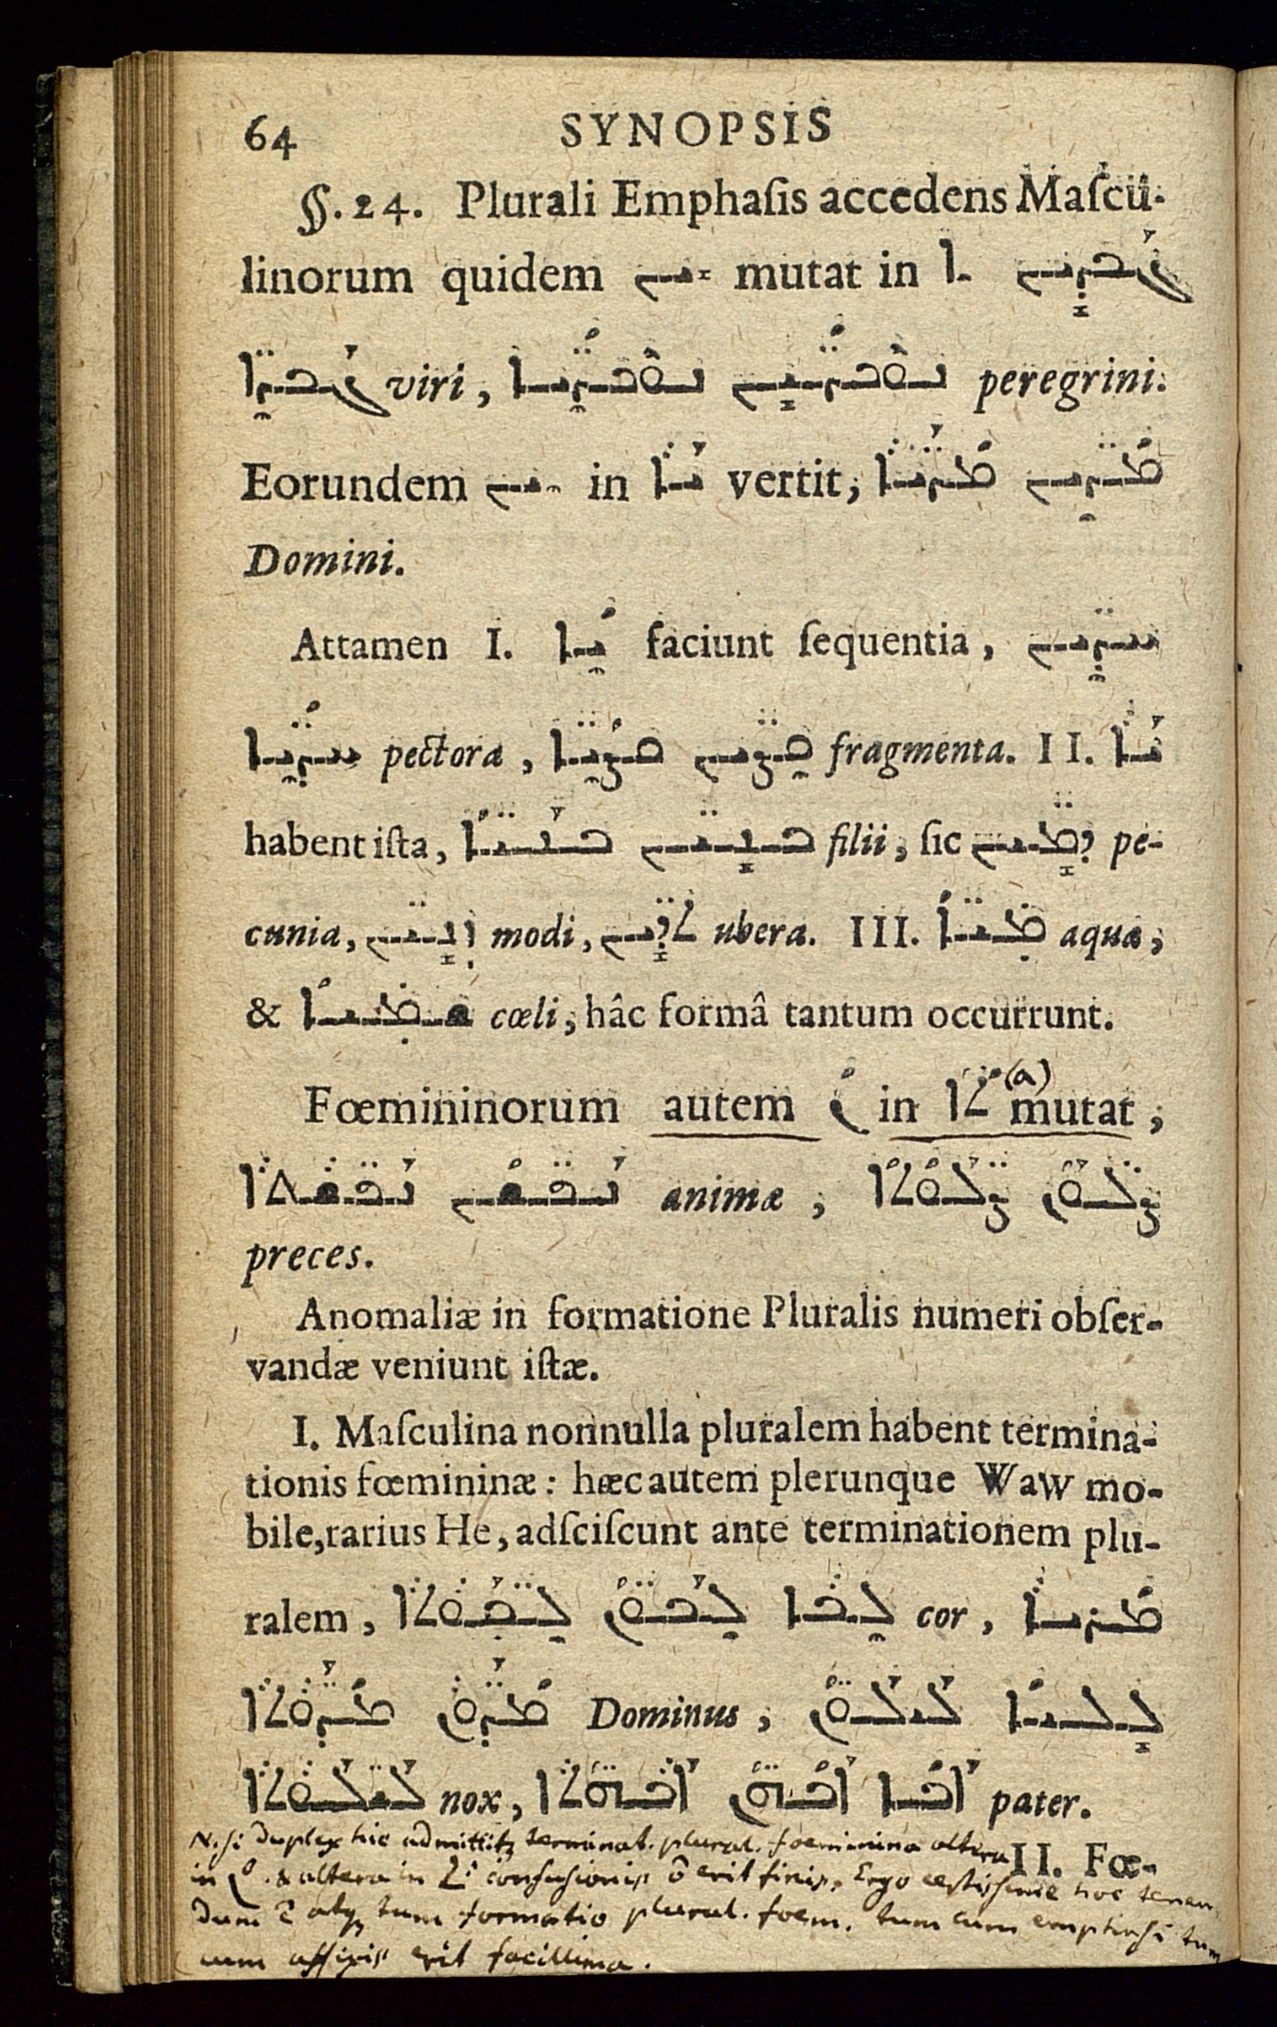 64 SYNOPSIS
§. 24. Plurali Emphaſis accedens Maſcu-
linorum quidem ـܝܢ mutat in ܐ ܓܒܪܝܢ
ܓܒܪ̈ܐ viri, ܢܘܟܪ̈ܝܐ ܢܘܟܪ̈ܝܝܢ peregrini.
Eorundem ܝܢ in ܝܐ vertit, ܡܪ̈ܝܐ ܡܪ̈ܝܢ
Domini.
Attamen I. ܝܐ faciunt ſequentia, ܚܕ̈ܝܢ
ܚܕ̈ܝܐ pectora, ܩܨ̈ܝܐ ܩܨ̈ܝܢ fragmenta. II. ܝܐ
habent iſta, ܒܢ̈ܝܐ ܒܢ̈ܝܢ filii, ſic ܕܡ̈ܝܢ pe-
cunia, ܙܢ̈ܝܢ modi, ܬܕ̈ܝܢ ubera. III. ܡ̈ܝܐ aquæ,
& ܫܡܝܐ cœli, hâc formâ tantum occurrunt.
Fœmininorum autem ܢ in ܬܐ (a) mutat,
ܢܦ̈ܫܬܐ ܢܦ̈ܫܢ animæ, ܨ̈ܠܘܬܐ ܨ̈ܠܘܢ
preces.
Anomaliæ in formatione Pluralis numeri obſer-
vandæ veniunt iſtæ.
I. Maſculina nonnulla pluralem habent termina-
tionis fœmininæ: hæc autem plerunque Waw mo-
bile, rarius He, adſciſcunt ante terminationem plu-
ralem, ܠܒ̈ܘܬܐ ܠܒ̈ܘܢ ܠܒܐ cor, ܡܪܝܐ
ܡܪ̈ܘܬܐ ܡܪ̈ܘܢ Dominus, ܠܝܠܘ̈ܢ ܠܠܝܐ
ܠܝ̈ܠܘܬܐ nox, ܐܒܗ̈ܬܐ ܐܒܗ̈ܢ ܐܒܐ pater.
II. Fœ-
N. si duplex hic admittitz terminat. plural. foeminina altera
in ܢ. & altera in ܬܐ confusionis ō erit finis. Ergo hoc tenen
dum ē atqz tum formatio plural. foem. tum cum tum
cum affixis erit facillima.